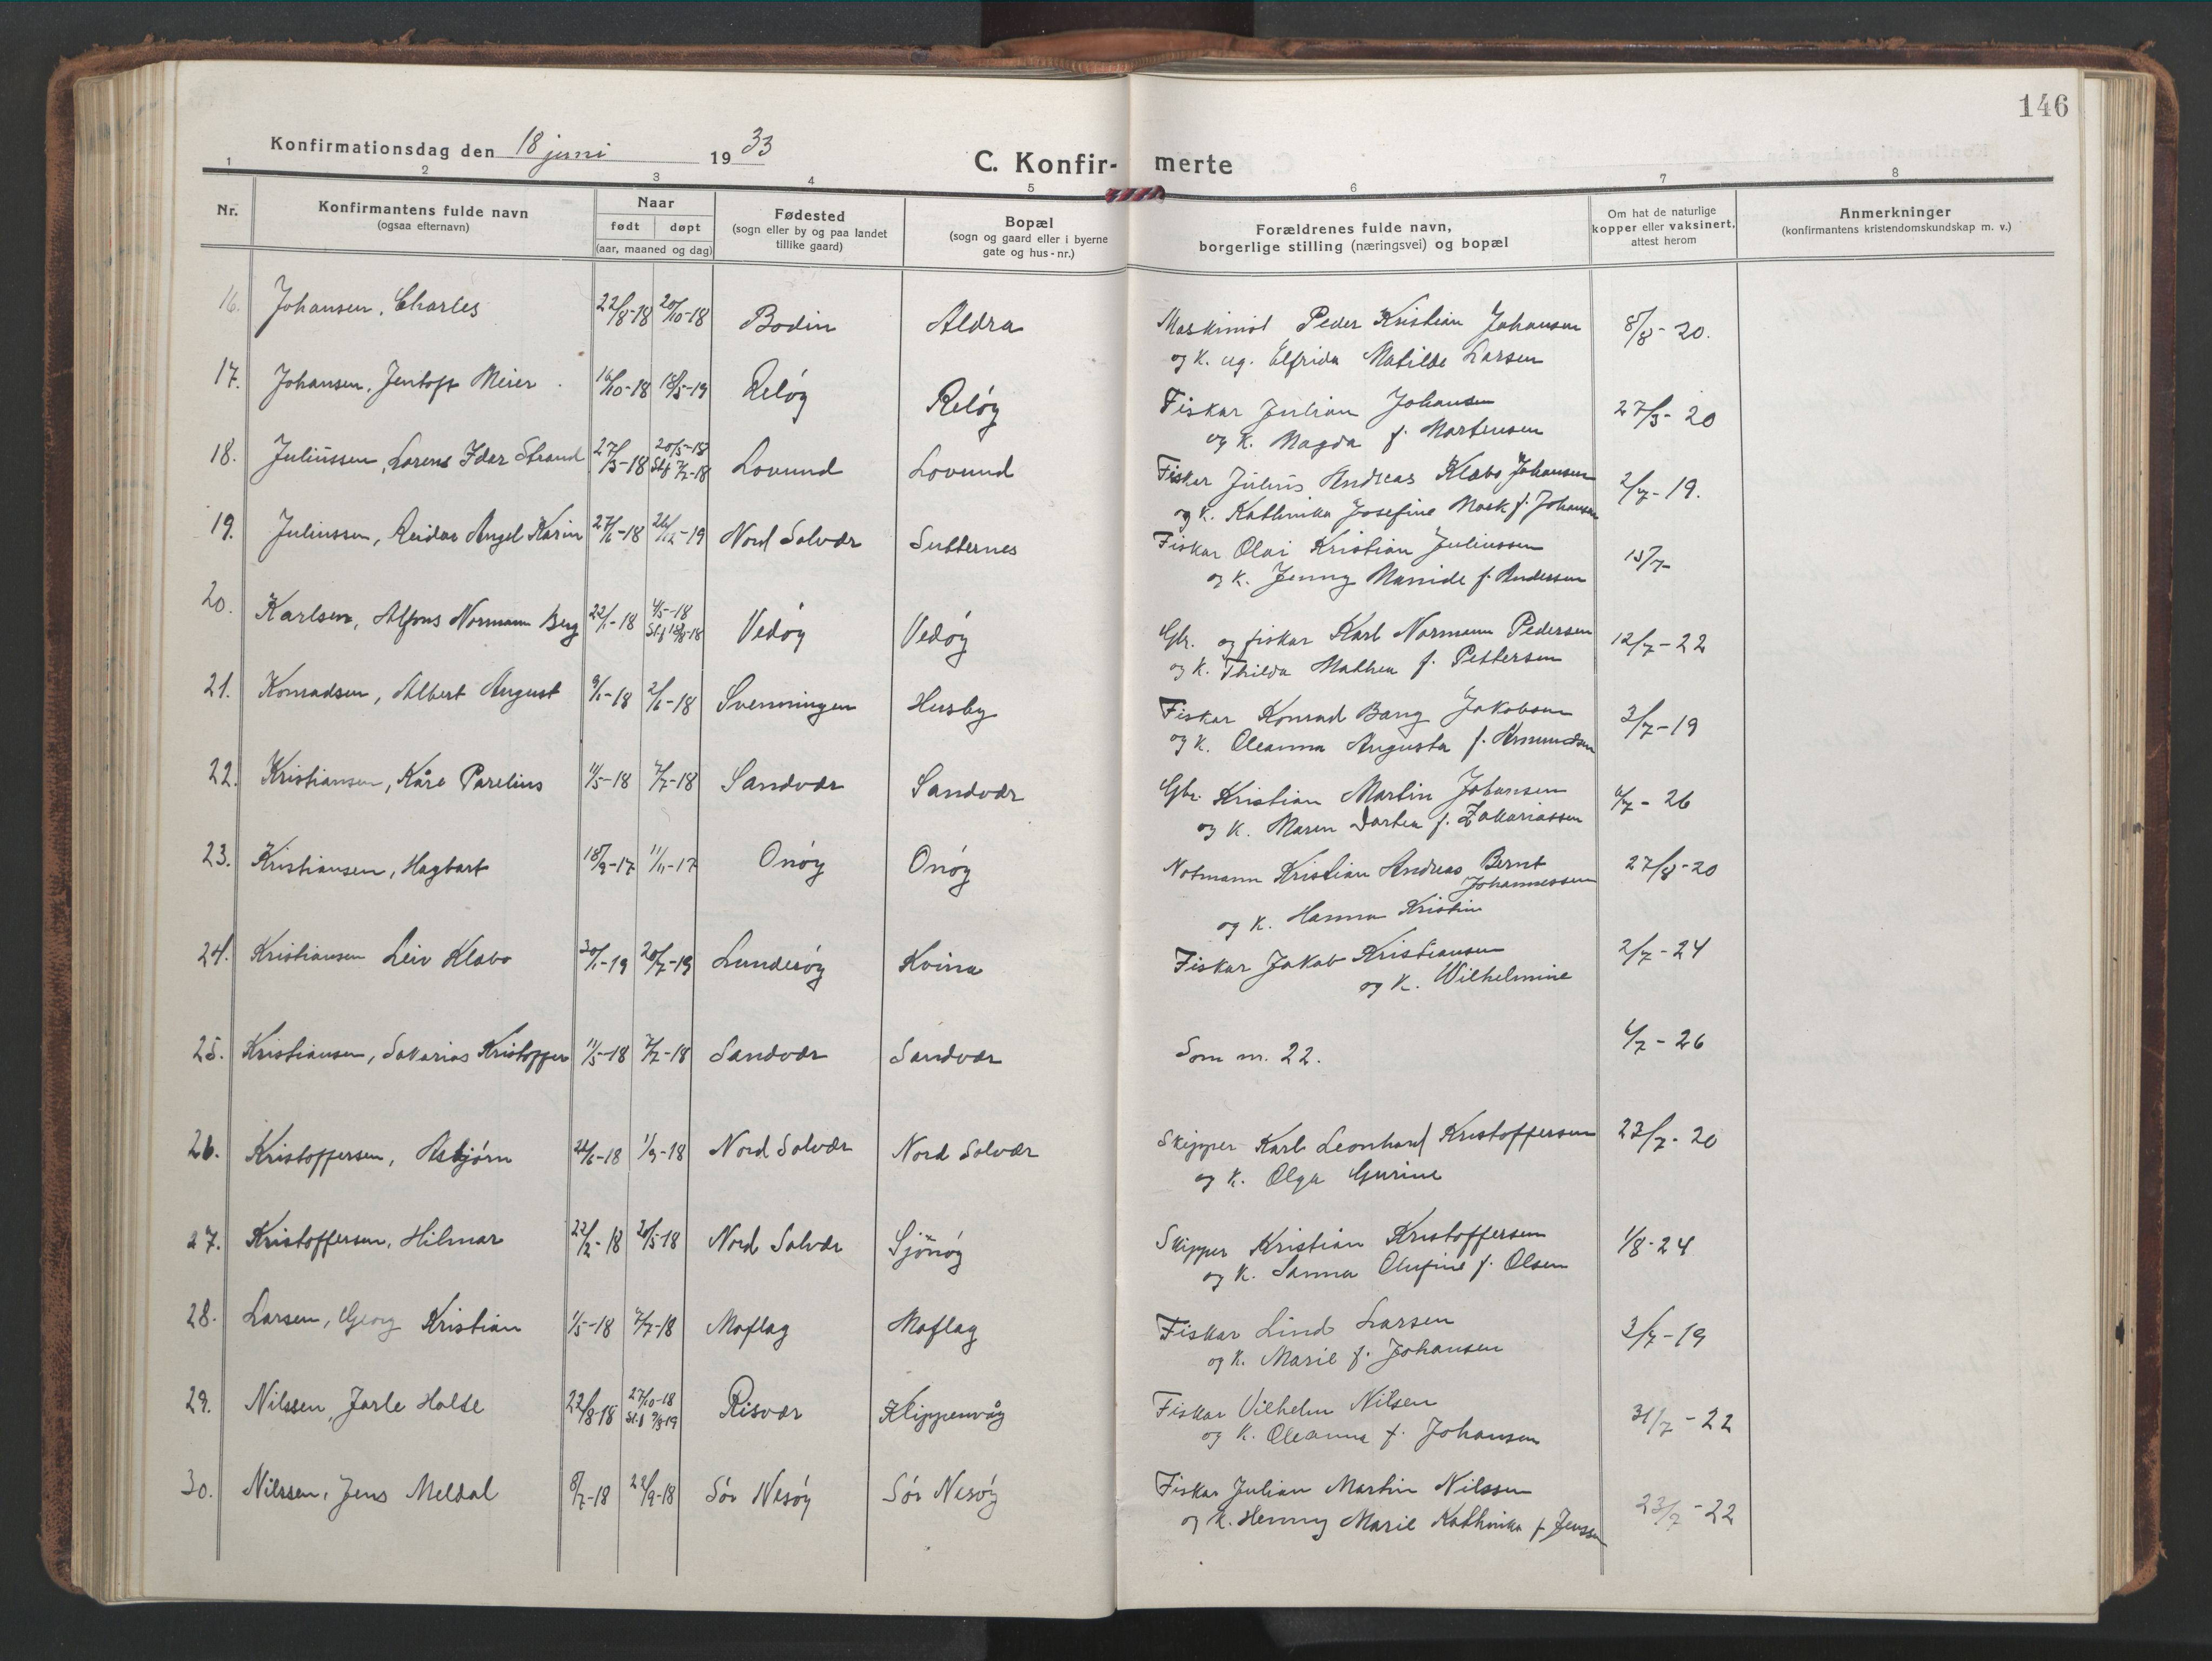 146
Konfirmationsdag den 18 juni 1933
C. Konfirmerte
1 2 3 4 5 6 7 8
Nr. Konfirmantens fulde navn (ogsaa efternavn) Naar født døpt (aar, maaned og dag) Fødested (sogn eller by og paa landet tillike gaard) Bopæl (sogn og gaard eller i byerne gate og hus-nr.) Forældrenes fulde navn, borgerlige stilling (næringsvei) og bopæl Om hat de naturlige kopper eller vaksinert, attest herom Anmerkninger (konfirmantens kristendomskundskap m. v.)
16. Johansen, Charles 22/8-18 20/10-18 Bodin Aldra Maskinist Peder Kristian Johansen 8/8-20.
og K. ug. Elfrida Matilde Larsen
17. Johansen, Jentoft Meier 16/10-18 18/5-19 Reløy Reløy Fiskar Julian Johansen 27/3-20
og K. Magda f. Martinsen
18. Juliussen, Lorens Idar Strand 27/3-18 20/5-18 Lovund Lovund Fiskar Julius Andreas Klæbo Johansen 2/7-19.
Stf 7/7-18 og K. Kathinka Josefine Mosk f. Johansen
19. Juliussen, Reidar Angel Karin 27/6-18 26/12-19 Nord Solvær Sutternes Fiskar Olai Kristian Juliussen 15/7-
og K. Jenny f. Andersen
20. Karlsen, Alfons Normann Berg 22/1-18 4/5-18 Vedøy Vedøy Gbr. og fiskar Karl Normann Pedersen 12/7-22
Stf 18/8-18 og K. Thilda Mathea f. Pettersen
21. Konradsen, Albert August 9/1-18 2/6-18 Svenningen Husby Fiskar Konrad Bang Jakobsen 3/7-19
og K. Oleanna Augusta f. Amundsen
22. Kristiansen, Kåre Parelius 11/5-18 7/7-18 Sandvær Sandvær Gbr. Kristian Martin Johansen 6/7-26
og K. Maren Dortea f. Zakariassen
23. Kristiansen, Hagbart 18/9-17 11/11-17 Onøy Onøy Notmann Kristian Andreas Bernt 27/8-20
Johannessen
og K. Hanna Kristin
24. Kristiansen Leiv Klæbo 30/1-19 20/7-19 Lunderøy Kvina Fiskar Jakob Kristiansen 2/7-24
og K. Wilhelmine
25. Kristiansen, Sakarias Kristoffer 11/5-18 7/7-18 Sandvær Sandvær Som nr. 22. 6/7-26
26. Kristoffersen, Asbjørn 22/6-18 1/9-18 Nord Solvær Nord Solvær Skipper Karl Leonhard Kristoffersen 23/7-20
og K. Olga Gurine
27. Kristoffersen, Hilmar 22/2-18 20/5-18 Nord Solvær Sjonøy Skipper Kristian Kristoffersen 1/8-24
og K. Sanna Olufine f. Olsen
28. Larsen, Georg Kristian 1/5-18 7/7-18 Moflag Moflag Fiskar Lind Larsen 3/7-19
og K. Marie f. Johansen
29. Nilssen, Jarle Holte 22/8-18 27/10-18 Risvær Klippenvåg Fiskar Vilhelm Nilsen 31/7-22
St.f 9/3-19 og K. Oleanna f. Johansen
30. Nilssen, Jens Meldal 8/7-18 22/9-18 Sør Nesøy Sør Nesøy Fiskar Julian Martin Nilssen 23/7-22
og K. Henny Marie Kathinka f. Jenssen